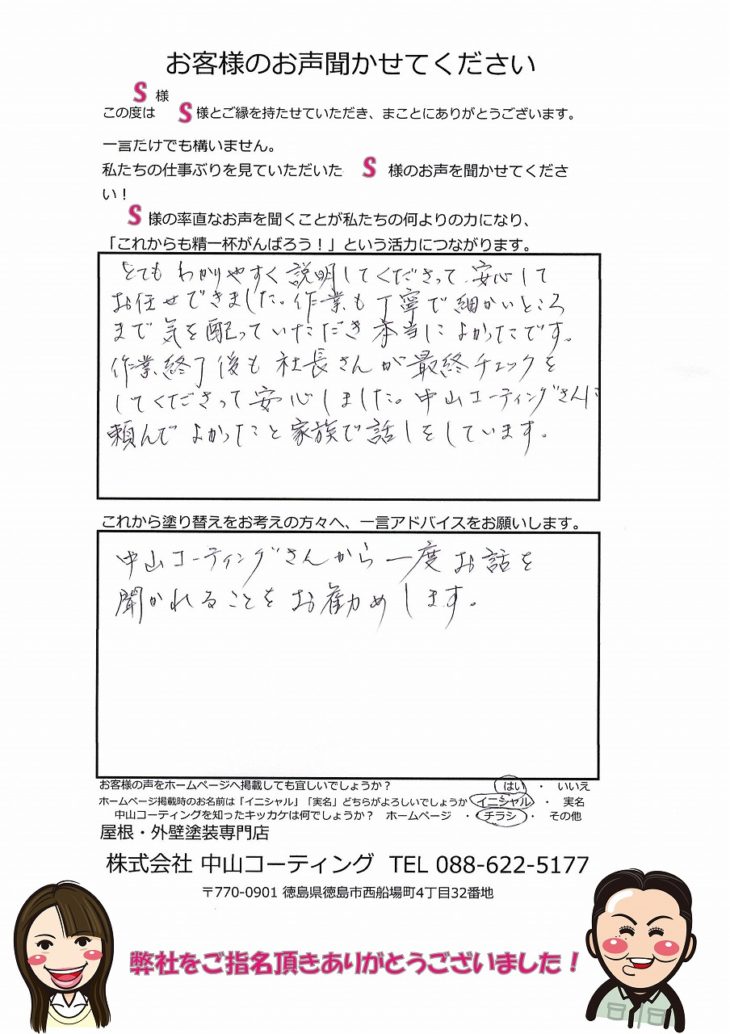 お客様のお声聞かせてください
S 様
この度は S 様とご縁を持たせていただき、まことにありがとうございます。
一言だけでも構いません。
私たちの仕事ぶりを見ていただいた S 様のお声を聞かせてくださ
い！
S 様の率直なお声を聞くことが私たちの何よりの力になり、
「これからも精一杯がんばろう！」という活力につながります。
とてもわかりやすく説明してくださって、安心して
お任せできました。作業も丁寧で細かいところ
まで気を配っていただき本当によかったです。
作業終了後も社長さんが最終チェックを
してくださって安心しました。中山コーティングさんに
頼んでよかったと家族で話しをしています。
これから塗り替えをお考えの方々へ、一言アドバイスをお願いします。
中山コーティングさんから一度お話を
聞かれることをお勧めします。
お客様の声をホームページへ掲載しても宜しいでしょうか？ はい ・ いいえ
ホームページ掲載時のお名前は「イニシャル」「実名」どちらがよろしいでしょうか イニシャル ・ 実名
中山コーティングを知ったキッカケは何でしょうか？ ホームページ ・ チラシ ・ その他
屋根・外壁塗装専門店
株式会社 中山コーティング TEL 088-622-5177
〒770-0901 徳島県徳島市西船場町4丁目32番地
弊社をご指名頂きありがとうございました！